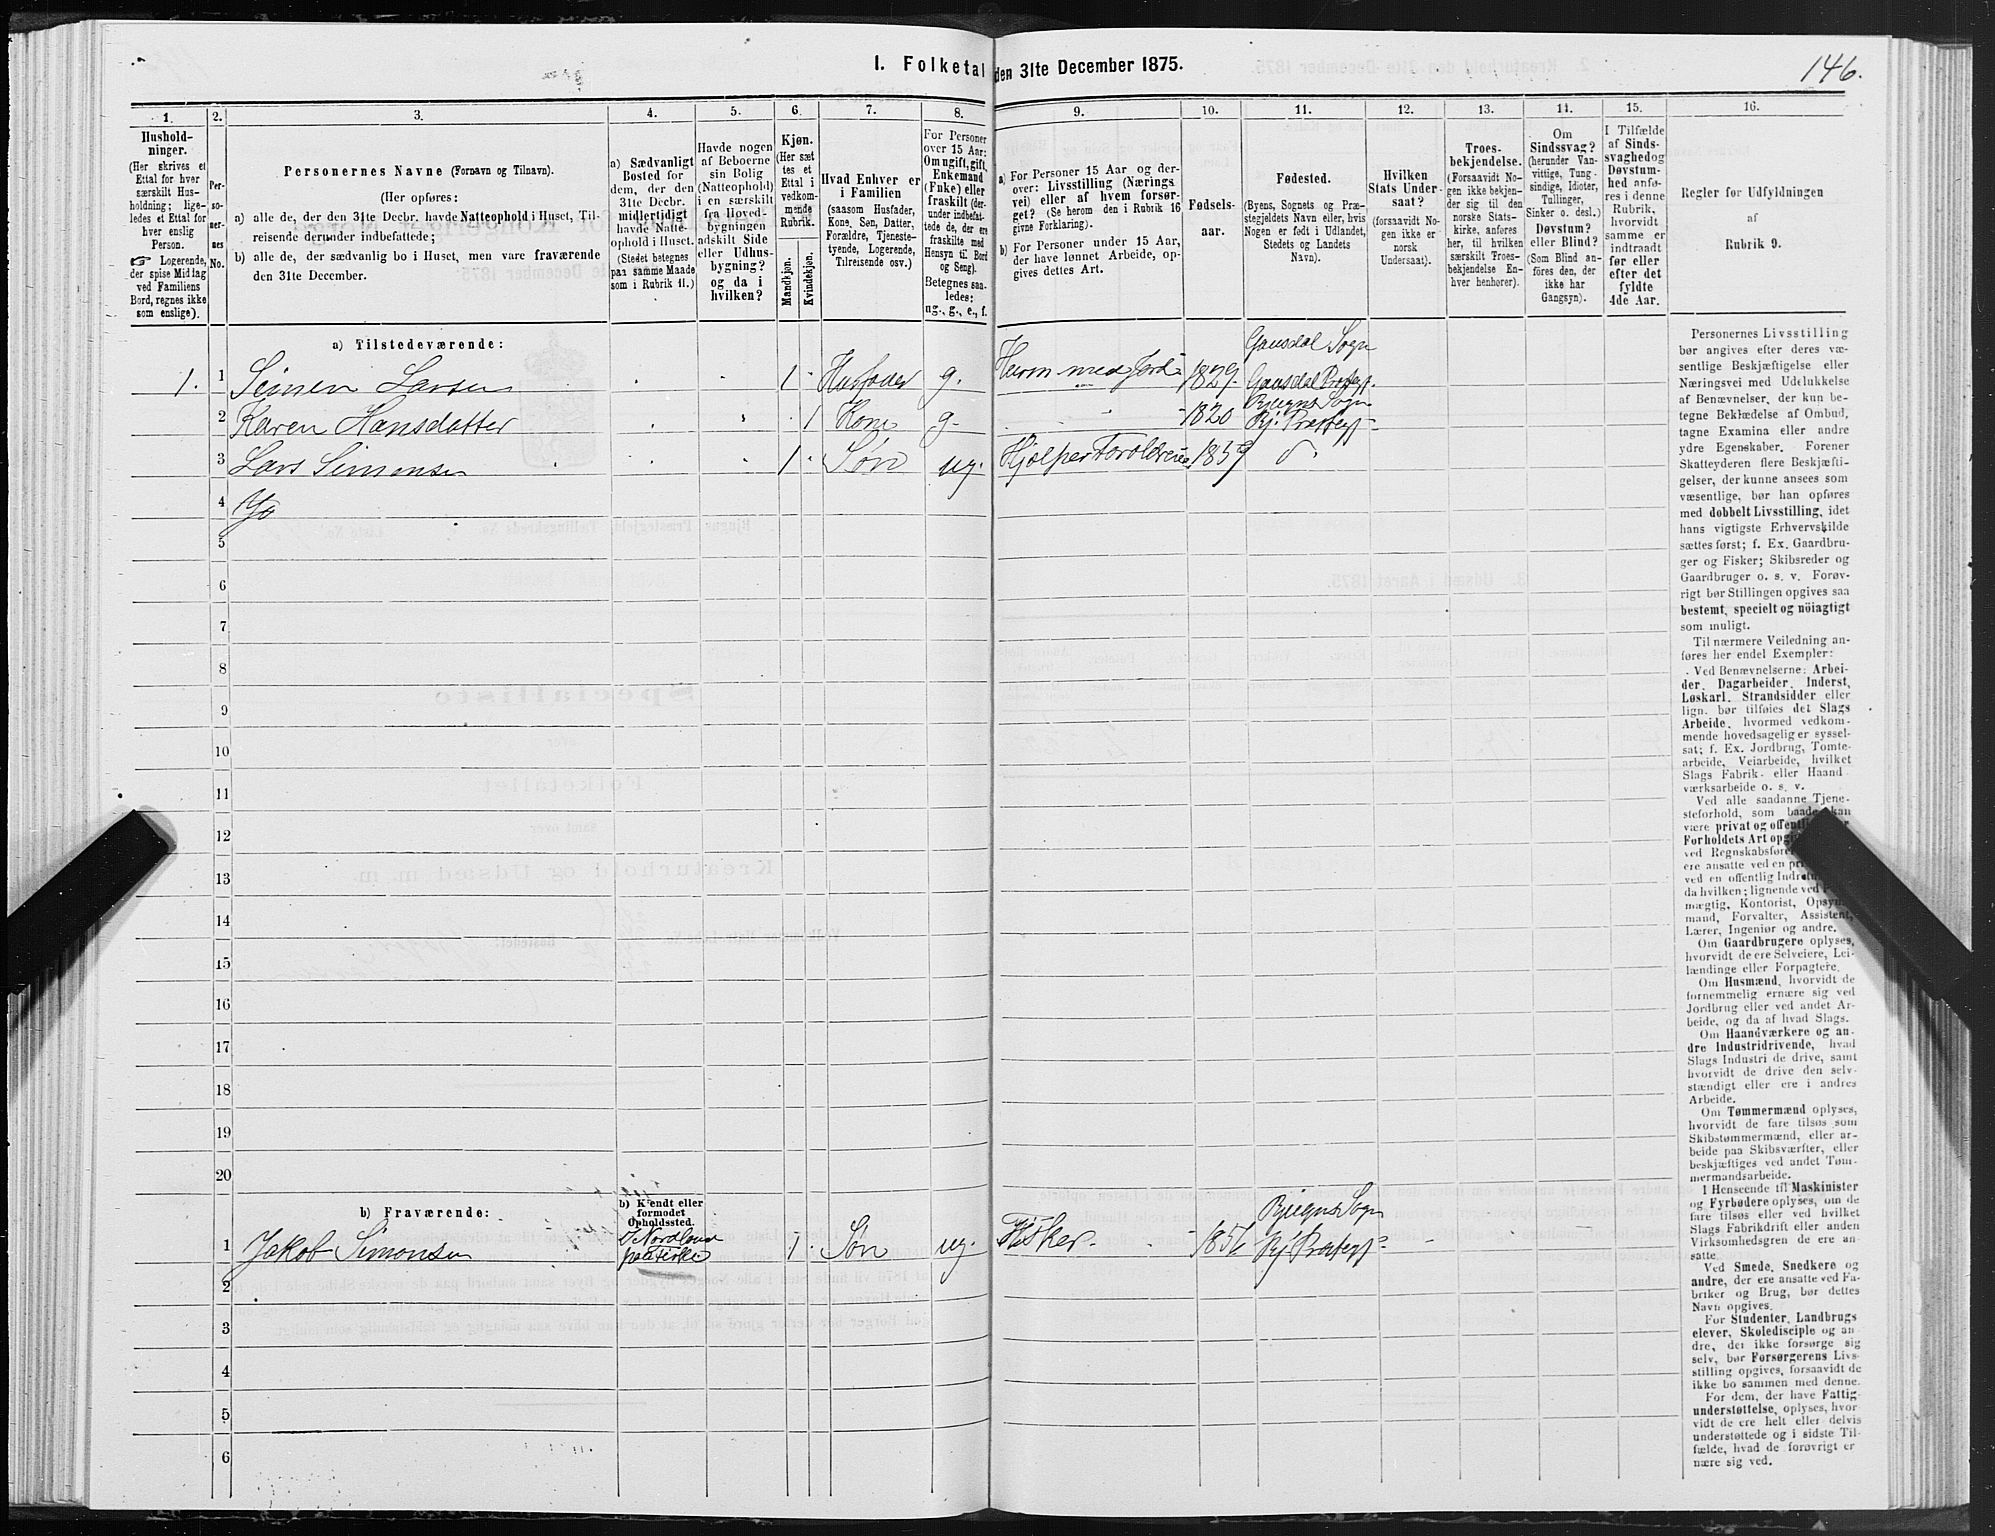 I. Folketal den 31te December 1875.
146.
1. 2. 3. 4. 5. 6. 7. 8. 9. 10. 11. 12. 13. 14. 15. 16.
Hushold-
ninger.
(Her skrives et
Ettal for hver
særskilt Hus-
holdning; lige-
ledes et Ettal for
hver enslig
Person.
☞ Logerende,
der spise Middag
ved Familiens
Bord, regnes ikke
som enslige).
Per-
so-
ner-
nes
No.
Personernes Navne (Fornavn og Tilnavn).
(Her opføres:
a) alle de, der den 31te Decbr. havde Natteophold i Huset, Til-
reisende derunder indbefattede;
b) alle de, der sædvanlig bo i Huset, men vare fraværende
den 31te December.
a) Sædvanligt
Bosted for
dem, der den
31te Decbr.
midlertidigt
havde Natte-
ophold i Huset.
(Stedet betegnes
paa samme Maade
som i Rubrik 11.)
Havde nogen
af Beboerne
sin Bolig
(Natteophold)
i en særskilt
fra Hoved-
bygningen
adskilt Side
eller Udhus-
bygning?
og da i
hvilken?
Kjøn.
(Her sæt
tes et
Ettal i
vedkom-
mende
Rubrik.
Mandkjøn.
Kvindekjøn.
Hvad Enhver er
i Familien
(saasom Husfader,
Kone, Søn, Datter,
Forældre, Tjeneste-
tyende, Logerende,
Tilreisende osv.)
For Personer
over 15 Aar:
Om ugift, gift,
Enkemand
(Enke) eller
fraskilt (der-
under indbefat-
tede de, der ere
fraskilte med
Hensyn til Bord
og Seng).
Betegnes saa-
ledes:
ug., g., e., f.
a) For Personer 15 Aar og der-
over: Livsstilling (Nærings-
vei) eller af hvem forsør-
get? (Se herom den i Rubrik 16
givne Forklaring).
b) For Personer under 15 Aar,
der have lønnet Arbeide, op-
gives dettes Art.
Fødsels-
aar.
Fødested.
(Byens, Sognets og Præ-
stegjeldets Navn eller, hvis
Nogen er født i Udlandet,
Stedets og Landets
Navn).
Hvilken
Stats Under-
saat?
(forsaavidt No-
gen ikke er
norsk
Undersaat).
Troes-
bekjendelse.
(Forsaavidt No-
gen ikke bekjen-
der sig til den
norske Stats-
kirke, anføres
her, til hvilken
særskilt Troes-
bekjendelse En-
hver henhører).
Om
Sindssvag?
(herunder Van-
vittige, Tung-
sindige, Idioter,
Tullinger,
Sinker o. desl.)
Døvstum?
eller Blind?
(Som Blind an-
føres den, der
ikke har
Gangsyn).
I Tilfælde
af Sinds-
svaghed og
Døvstum-
hed anfø-
res i denne
Rubrik,
hvorvidt
samme er
indtraadt
før eller
efter det
fyldte
4de Aar.
Regler før Udfyldningen
af
Rubrik 9.
a) Tilstedeværende:
Gausdal Sogn
1. 1 Simen Larsen 1 Husfader g. Husm med Jord 1829. Gausdal Præstegj.
Bjugns Sogn
2 Karen Hansdatter 1 Kone g. 1820 Bj. Præstegj
3 Lars Simonsen 1 Søn ug. Hjælper Forældrene 1859
4
5
6
7
8
9
10
11
12
13
14
15
16
17
18
19
20
b) Fraværende:
b) Kjendt eller
formodet
Opholdssted.
Bjugns Sogn
Nordland
1 Jakob Simonsen paa fiske 1 Søn ug. Fisker 1856 Bj. Præstegj
2
3
4
5
6
Personernes Livsstilling
bør angives efter deres væ-
sentlige Beskjæftigelse eller
Næringsvei med Udelukkelse
af Benævnelser, der kun be-
tegne Beklædelse af Ombud,
tagne Examina eller andre
ydre Egenskaber. Forener
Skatteyderen flere Beskjæfti-
gelser, der kunne ansees som
væsentlige, bør han opføres
med dobbelt Livsstilling, idet
hans vigtigste Erhvervskilde
sættes først; f. Ex. Gaardbru-
ger og Fisker; Skibsreder og
Gaardbruger o. s. v. Forøv-
rigt bør Stillingen opgives saa
bestemt, specielt og nöiagtigt
som muligt.
Til nærmere Veiledning an-
føres her endel Exempler:
Ved Benævnelserne: Arbei-
der, Dagarbeider, Inderst,
Løskarl, Strandsidder eller
lign. bør tilføies det Slags
Arbeide, hvormed vedkom-
mende hovedsagelig er syssel-
sat; f. Ex. Jordbrug, Tomte-
arbeide, Veiarbeide, hvilket
Slags Fabrik- eller Haand-
værksarbeide o. s. v.
Ved alle saadanne Tjene-
steforhold, som baade kan
være privat og
Forholdets Art
ved
ere ansatte ved en
ved en offentlig
da hvilken; lignende ved
mægtig, Kontorist,
mand, Forvalter, Assistent,
Lærer, Ingeniør og andre.
Om Gaardbrugere oplyses,
hvorvidt de ere Selveiere, Lei-
lændinge eller Forpagtere.
Om Husmænd, hvorvidt de
fornemmelig ernære sig ved
Jordbrug eller ved andet Ar-
beide, og da af hvad Slags.
Om Haandværkere og an-
dre Industridrivende, hvad
Slags Industri de drive, samt
hvorvidt de drive den selv-
stændigt eller ere i andres
Arbeide.
Om Tømmermænd oplyses,
hvorvidt de fare tilsøs som
Skibstømmermænd, eller ar-
beide paa Skibsværfter, eller
beskjæftiges ved andet Tøm-
mermandsarbeide.
I Henseende til Maskinister
og Fyrbødere oplyses, om de
fare tilsøs eller ved hvilket
Slags Fabrikdrift eller anden
Virksomhedsgren de ere an-
satte.
Ved Smede, Snedkere og
andre, der ere ansatte ved Fa-
briker og Brug, bør dettes
Navn opgives.
For Studenter, Landbrugs
elever, Skoledisciple og an-
dre, der ikke forsørge sig
selv, bør Forsørgerens Livs-
stilling opgives, forsaavidt de
ikke bo sammen med denne.
For dem, der have Fattig-
understøttelse, oplyses, hvor-
vidt de ere helt eller delvis
understøttede og i sidste Til-
fælde, hvad de forøvrigt er
nære sig ved.